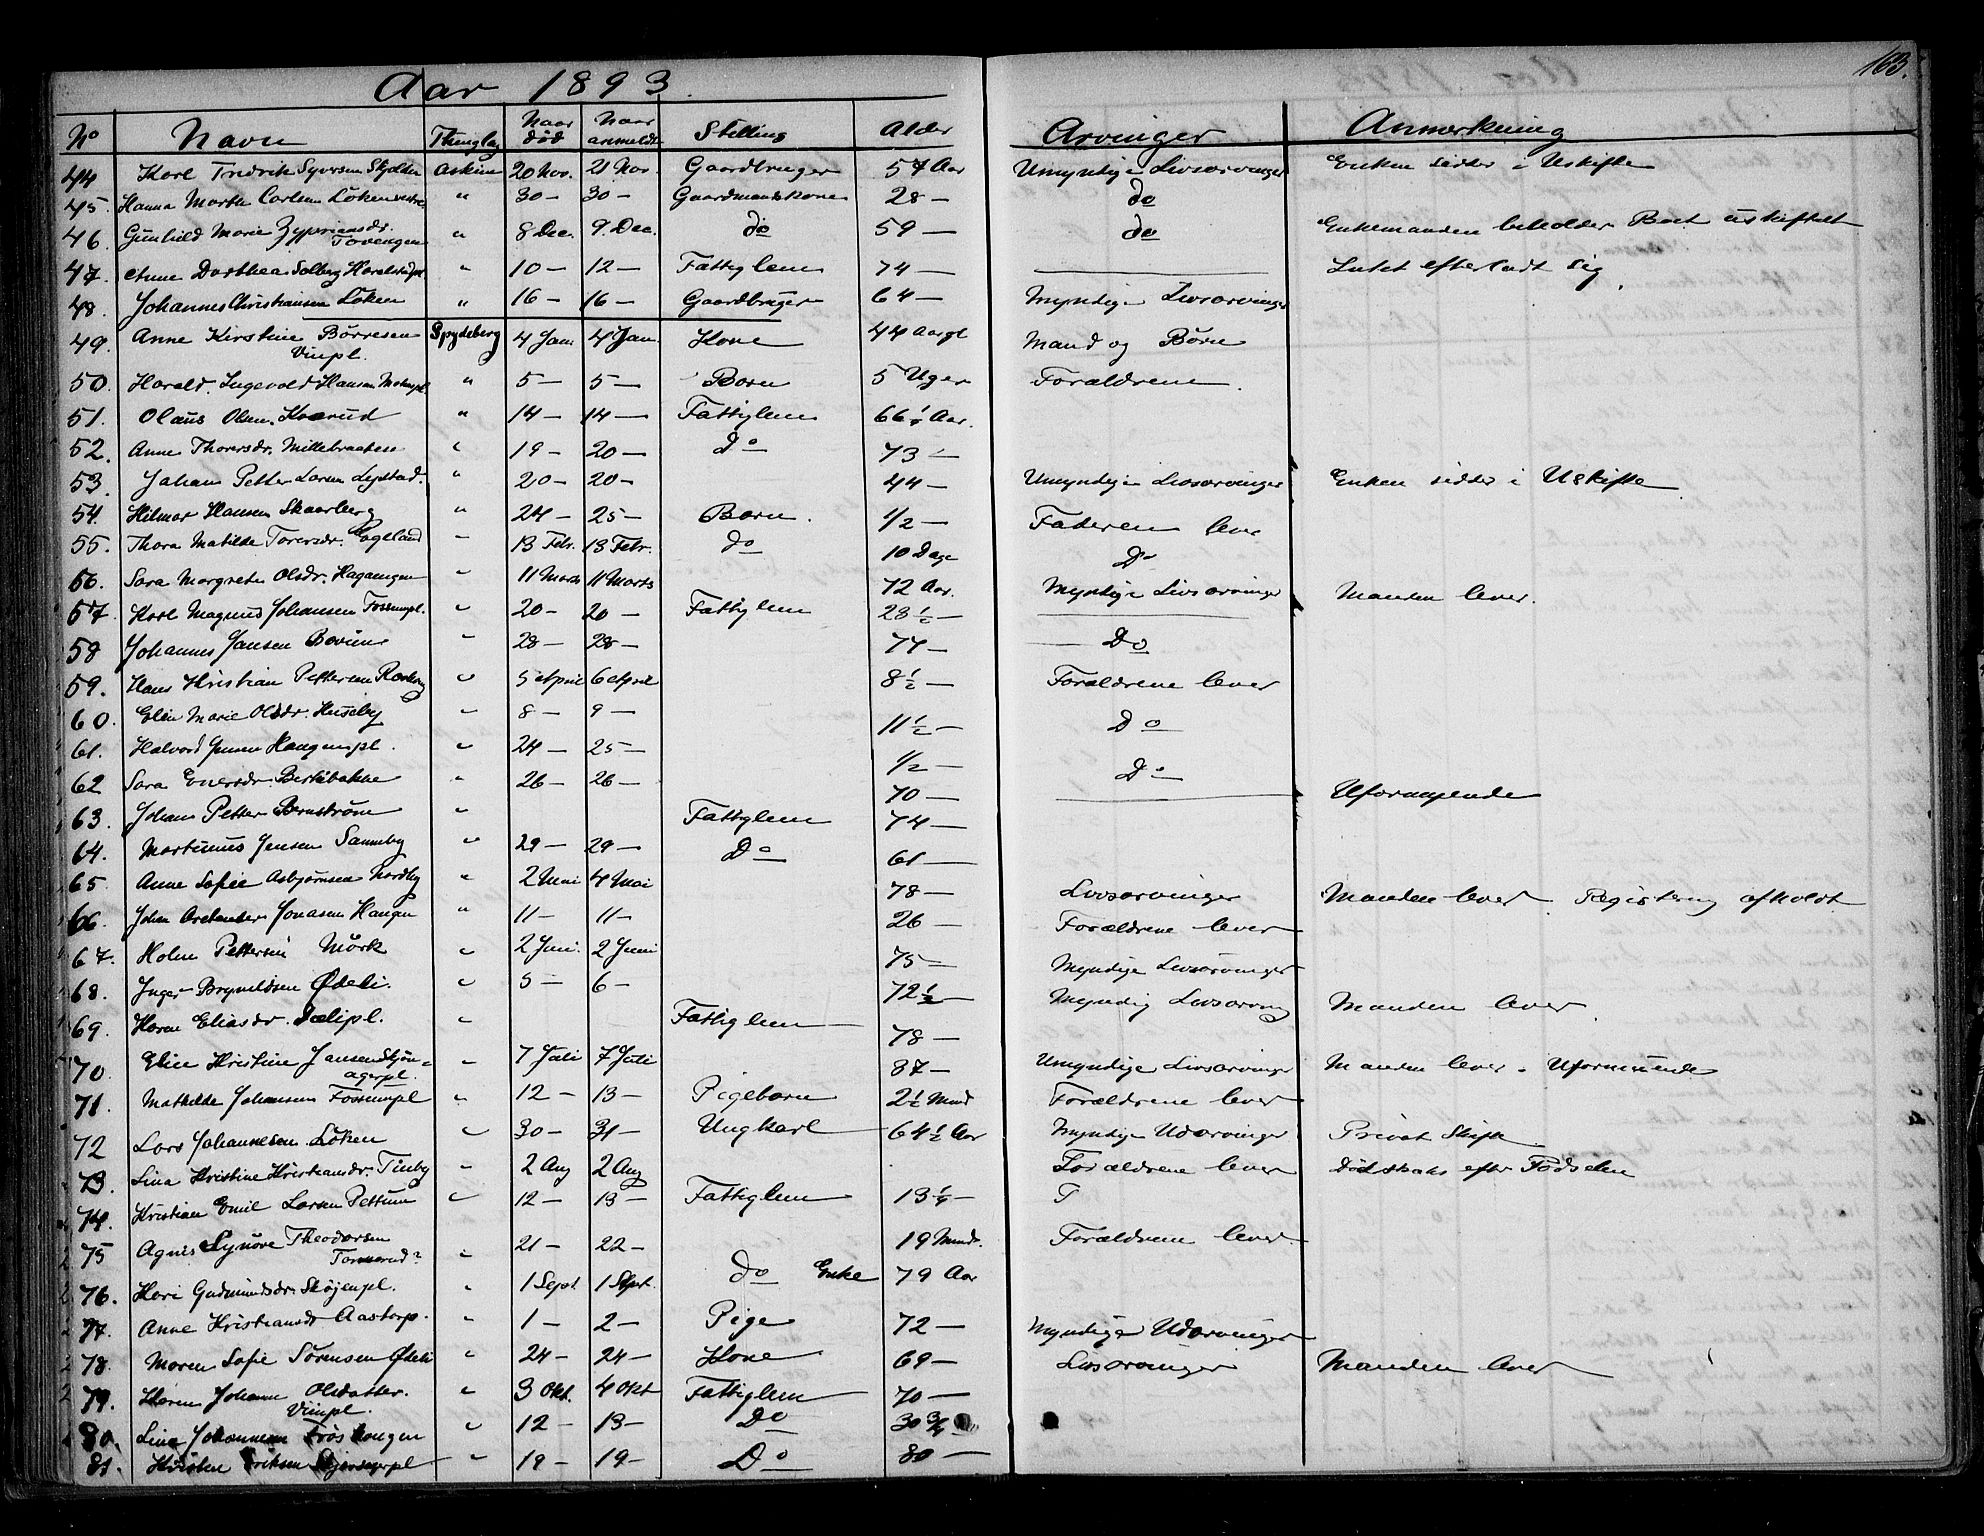 Aar 1893.
163.
No Navn Thinglag Naar død Naar anmeldt Stilling Alder Arvinger Anmerkning
44 Karl Fredrik Syversen Askim 20 Nov. 21 Nov. Gaardbruger 57 Aar Umyndige Livsarvinger Enken sidder i Uskifte
45. Hanna Marthe Carlsen Løken " 30 — 30 — Gaardmandskone 28 — do
46. Gunhild Marie Zypriansdr. Tovengen " 8 Dec. 9. Dec. do 59 — do Enkemanden beholder Boet uskiftet
47. Anne Dorthea Solberg " 10 — 12 — Fattiglem 74 — Intet efterladt sig
48. Johannes Christiansen Løken " 16 — 16 — Gaardbruger 64 — Myndige Livsarvinger
49. Anne Kirstine Børresen Vinpl. Spydeberg 4 Jan. 4 Jan. Kone 44 Aargl Mand og Børn
50. Harald Ingevald Hansen " 5 — 5 — Barn 5 Uger Forældrene.
51. Olaus Olsen " 14 — 14 — Fattiglem 66 Aar.
52. Anne Thorersdr. Millebraaten " 19 — 20 — Do 73 —
53. Johan Petter Larsen " 20 — 20 — 44 — Umyndige Livsarvinger Enken sidder i Uskifte
54. Hilmar Hansen Skaarberg " 24 — 25 — Barn. 1/2 — Faderen lever
55. Thora Matilde Torersdr. " 13 Febr. 13 Febr. do 10 Dage Do
56. Sara Margrete Olsdr. Hagaengen " 11 Marts 11 Marts 72 Aar. Myndige Livsarvinger Manden lever.
57. Karl Magnus Johansen Fossumpl. " 20 — 20 — Fattiglem 28 1/2 —
58 Johannes Jansen " 28 — 28 — 74 — Do
59. Hans Kristian Pettersen " 5 April 6 April 8 1/2 — Forældrene lever
60. Elin Marie Olsdr. Huseby " 8 — 9 — 11 1/2 — Do
61. Halvard Haugenspl. " 24 — 25 — 1/2 — Do
62 Sara Enersdr. " 26 — 26 — 70 — Uformuende
63. Johan Petter " Fattiglem 74 —
64. Martinus Jensen " 29 — 29 — Do 61 —
65. Anne Sofie Asbjørnsen Nordby " 2 Mai 4 Mai 78 — Livsarvinger Manden lever. Registering afholdt
66. Johan Jonasen Haugen " 11 — 11 — 26 — Forældrene lever
67. Pettersen Mørk " 2 Juni. 2 Juni 75 — Myndige Livsarvinger
68. Inger Brynildsen Ødeli. " 5 — 6 — 72 1/2 — Myndig Livsarving Manden lever.
69. Karen Eliasdr. " Fattiglem 78 —
70. Elise Kristine Jansen Skjønagerpl. " 7 Juli 7 Juli 37 — Umyndige Livsarvinger Manden lever. Uformuende
71. Mathilde Johansen Fossumpl " 12 — 13 — Pigebarn 2 1/2 Mnd Forældrene lever
72 Lars Johannesen Løken " 30 — 31 — Ungkarl 64 1/2 Aar Myndige Udarvinger Privat Skifte
73. Lina Kristine Kristiansdr. " 2 Aug 2 Aug Forældrene lever død straks efter Fødselen
74. Kristian Emil Larsen " 12 — 13 — Fattiglem 13 1/4 —
75 Agnes Synøve Theodorsen " 21 — 22 — 19 Mndr. Forældrene lever
76. Kari Gudmundsdr. Skøjenpl. " 1 Sept 1 Sept. do Enke 79 Aar
77. Anne Kristiansdr. " 1 — 2 — Pige 72 — Myndige Udarvinger
78. Maren Sofie Sørensen Ødeli " 24 — 24 — Kone 69 — Livsarvinger Manden lever
79. Karen Johanne Olsdatter. Vinpl. " 3 Okt. 4 Okt Fattiglem 70 —
80. Lina Johannesen " 12 — 13 — Do 30 3/4
81. Eriksen " 19 — 19 — Do 80 —